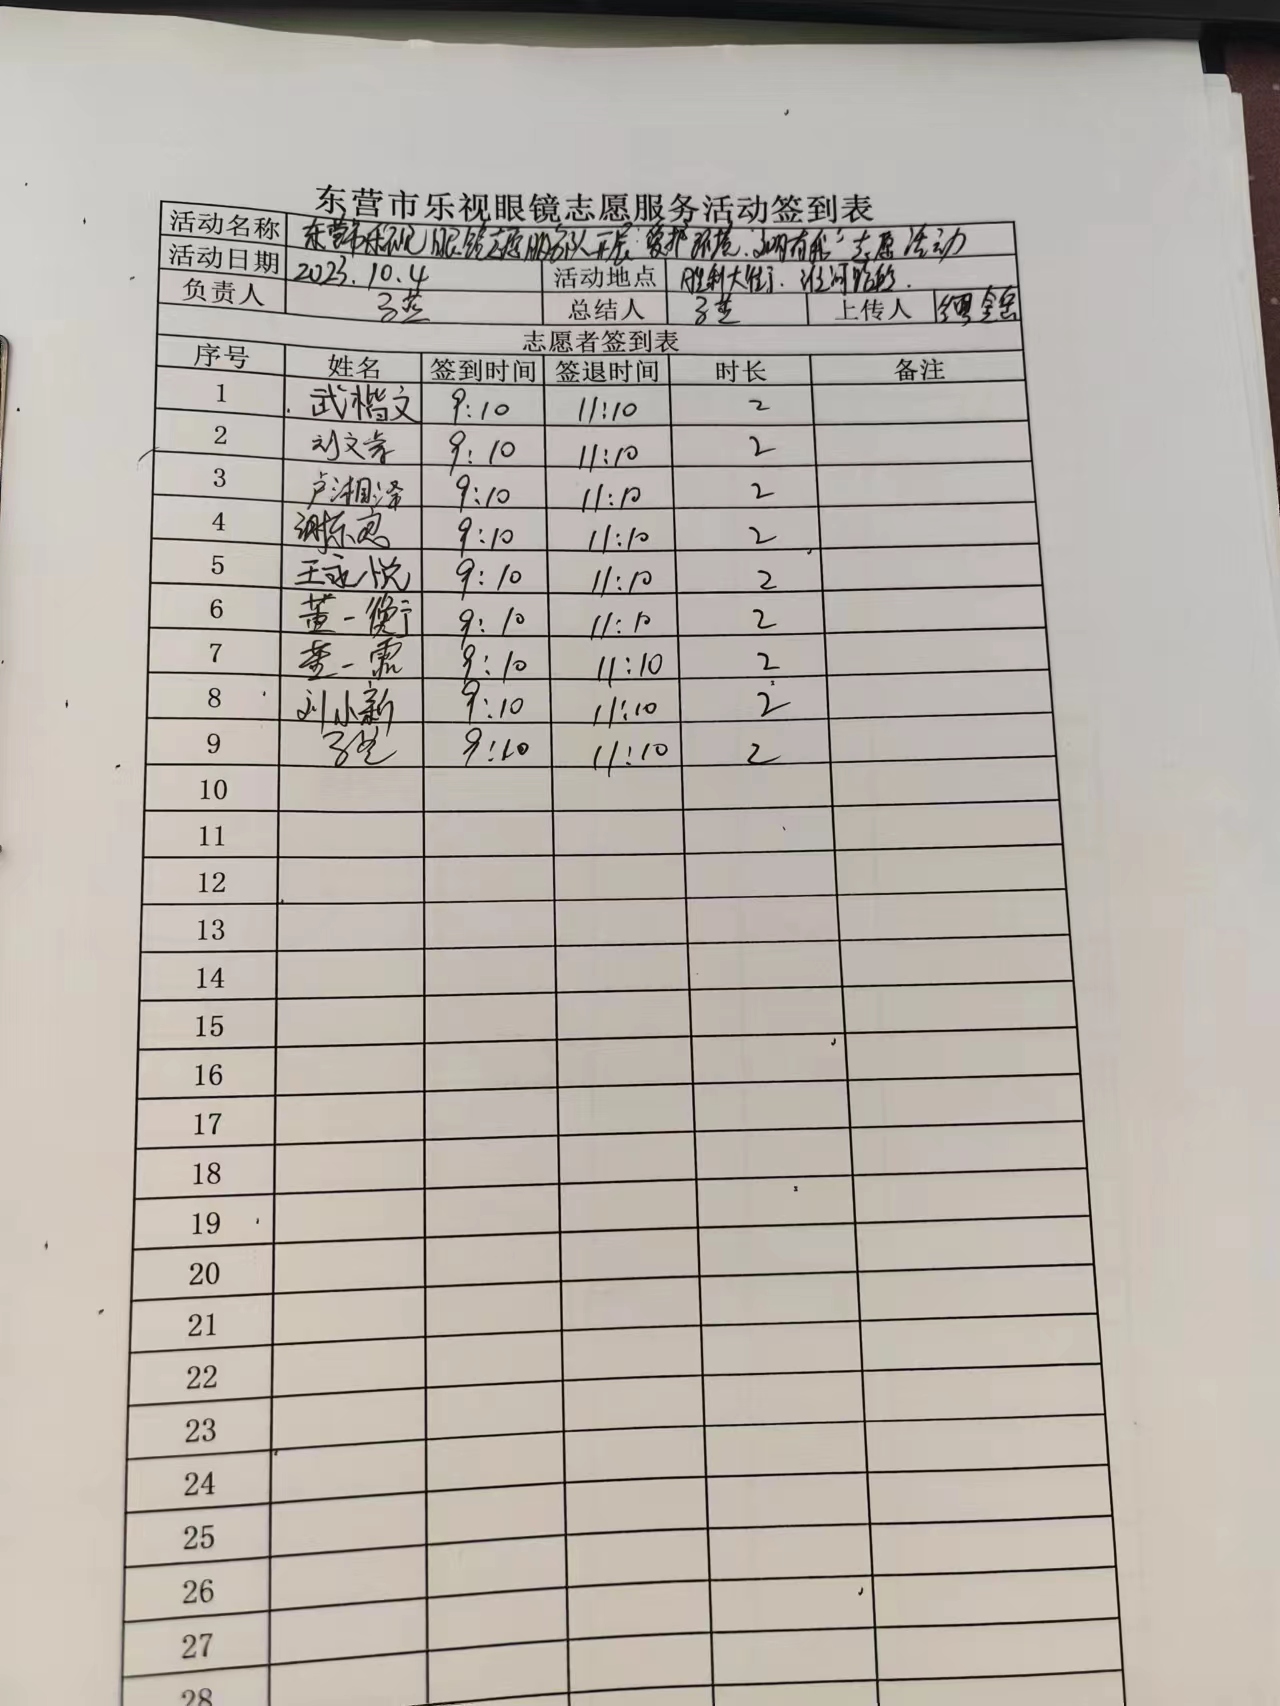 东营市乐视眼镜志愿服务活动签到表
活动名称 东营市乐视眼镜志愿服务队开展"爱护环境,文明有我"志愿活动
活动日期 2023.10.4 活动地点 胜利大街、淮河路段.
负责人 总结人 上传人
志愿者签到表
序号 姓名 签到时间 签退时间 时长 备注
1 武楷文 9:10 11:10 2
2 刘文 9:10 11:10 2
3 卢湘泽 9:10 11:10 2
4 谢东 9:10 11:10 2
5 王永悦 9:10 11:10 2
6 董一衡 9:10 11:10 2
7 董一霖 9:10 11:10 2
8 刘小新 9:10 11:10 2
9 9:10 11:10 2
10
11
12
13
14
15
16
17
18
19
20
21
22
23
24
25
26
27
28